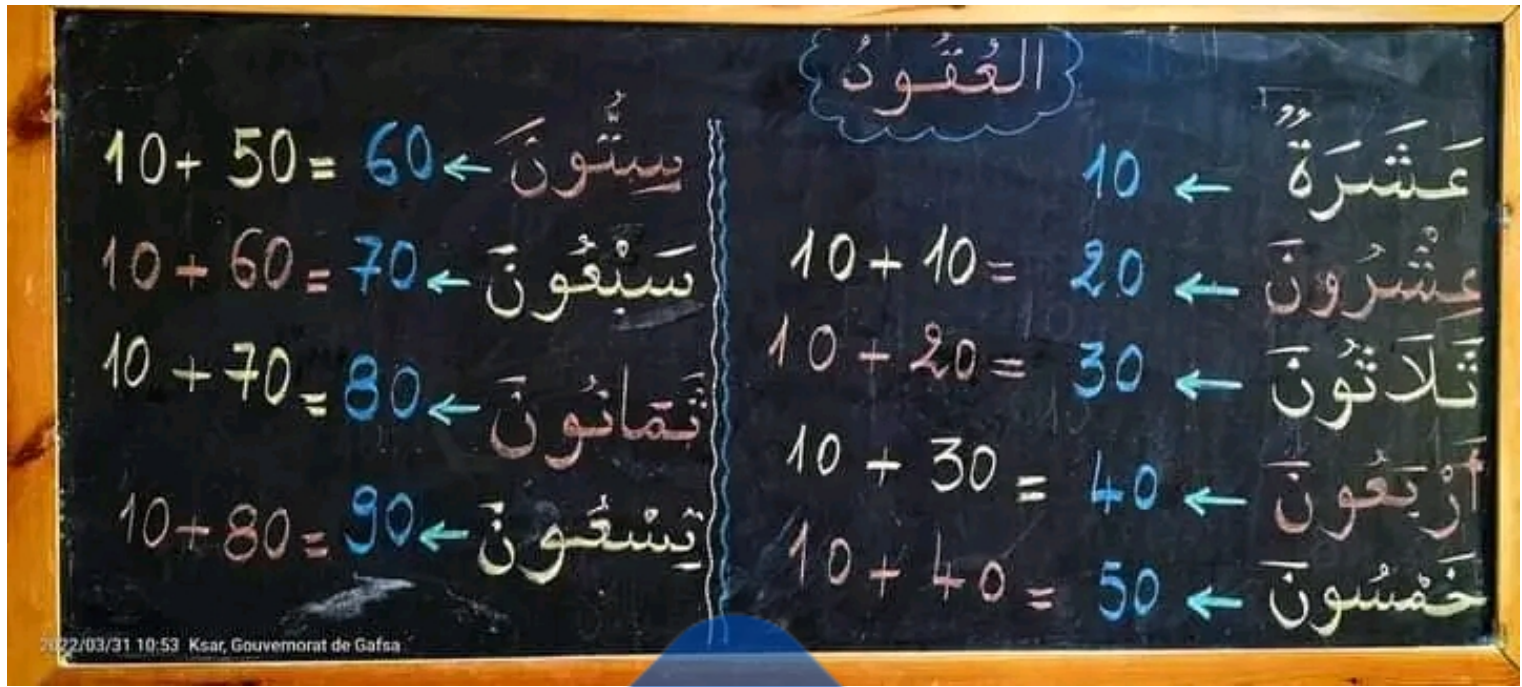 العُقُودُ
عَشَرَةٌ ← 10
عِشْرُونَ ← 20 = 10 + 10
ثَلَاثُونَ ← 30 = 20 + 10
أَرْبَعُونَ ← 40 = 30 + 10
خَمْسُونَ ← 50 = 40 + 10
سِتُّونَ ← 60 = 50 + 10
سَبْعُونَ ← 70 = 60 + 10
ثَمَانُونَ ← 80 = 70 + 10
تِسْعُونَ ← 90 = 80 + 10
2022/03/31 10:53 Ksar, Gouvernorat de Gafsa